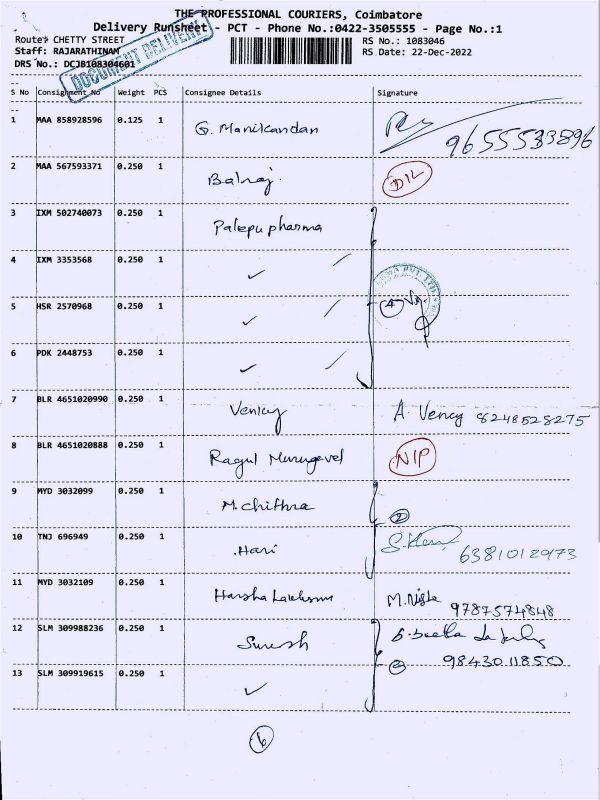 THE PROFESSIONAL COURIERS, Coimbatore
Delivery Runsheet - PCT - Phone No.:0422-3505555 - Page No.:1
Route: CHETTY STREET
RS No.: 1083046
Staff: RAJARATHINAM
RS Date: 22-Dec-2022
DRS No.: DCJB108304601
DOCUMENT DELIVERY
S No Consignment No Weight PCS Consignee Details Signature
1 MAA 858928596 0.125 1 G. Manikandan 9655533896
2 MAA 567593371 0.250 1 Balraj. DIL
3 IXM 502740073 0.250 1 Palepu pharma
4 IXM 3353568 0.250 1 ✓
5 HSR 2570968 0.250 1 ✓ 4
6 PDK 2448753 0.250 1 ✓
7 BLR 4651020990 0.250 1 A. Vency 8248528275
8 BLR 4651020888 0.250 1 Ragul Murugevel NIP
9 MYD 3032099 0.250 1 M. Chithra 2
10 TNJ 696949 0.250 1 Hari 6381012973
11 MYD 3032109 0.250 1 Harsha 9787574848
12 SLM 309988236 0.250 1 Suresh 9843011850
13 SLM 309919615 0.250 1 ✓ 2
6